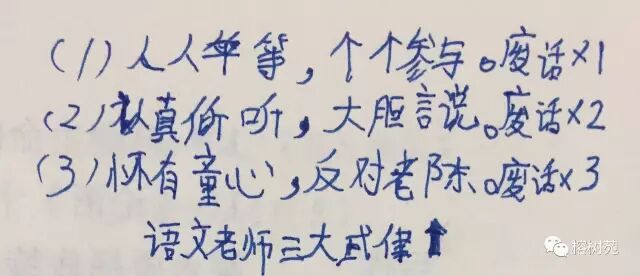 (1)人人平等，个个参与。废话×1
(2)认真倾听，大胆言说。废话×2
(3)怀有童心，反对老陈。废话×3
语文老师三大式律⬆
榕树苑